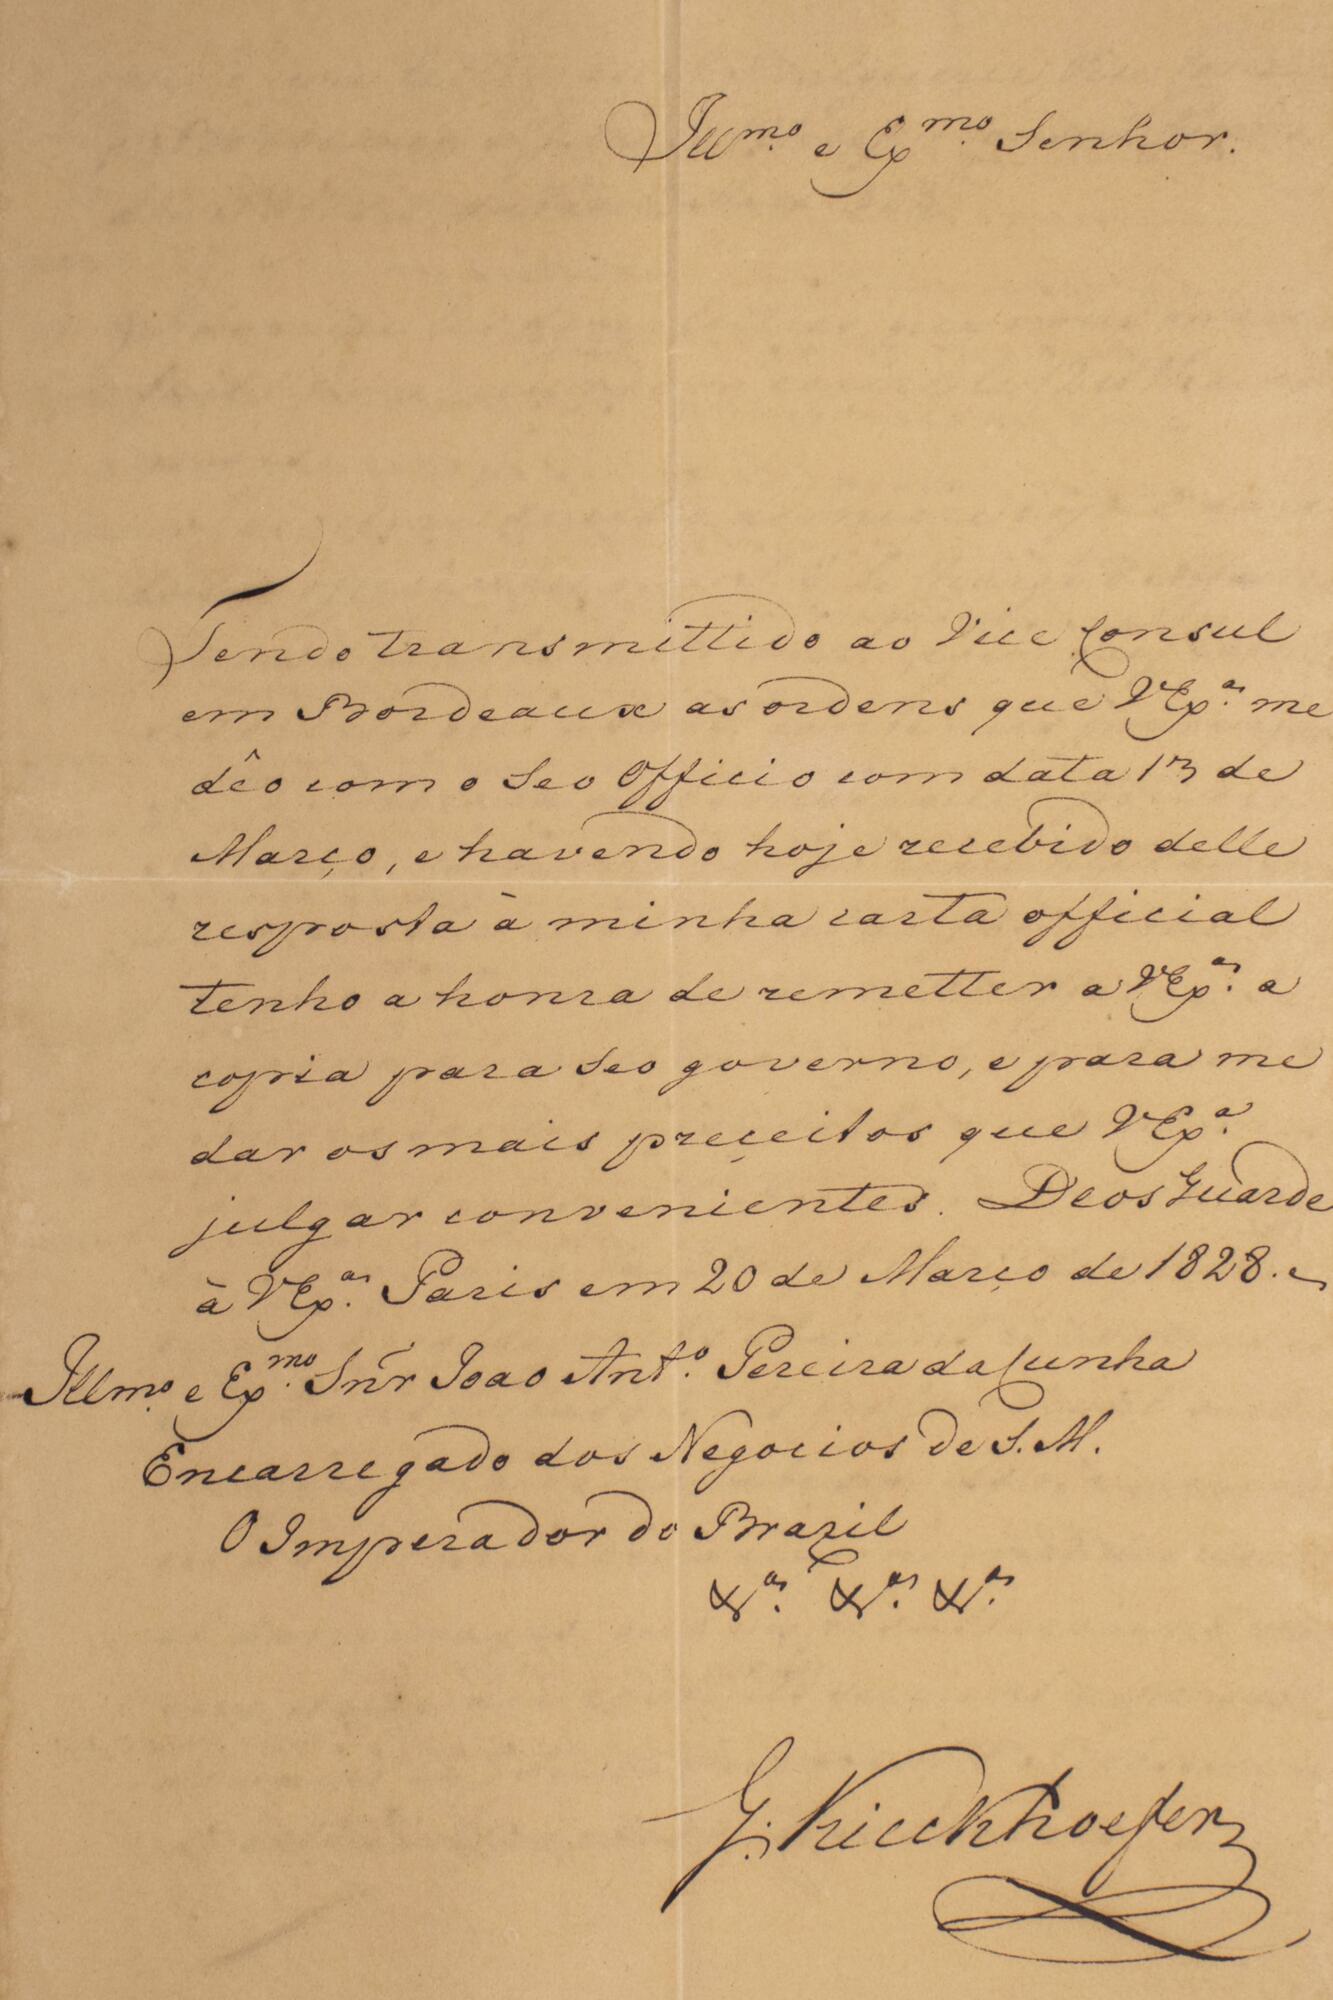 Illmo. e Exmo. Senhor.
Tendo transmittido ao Vice Consul
em Bordeaux as ordens que VExa. me
dêo com o Seo Officio com data 13 de
Março, e havendo hoje recebido delle
resposta à minha carta official
tenho a honra de remetter a VExa. a
copia para Seo governo, e para me
dar os mais preçeitos que VExa.
julgar convenientes. Deos Guarde
à VExa. Paris em 20 de Março de 1828.
Illmo. e Exmo. Snr̃ Joao Anto. Pereira da Cunha
Encarregado dos Negocios de S. M.
O Imperador do Brazil
&a. &a. &a.
G. Kieckhoefer